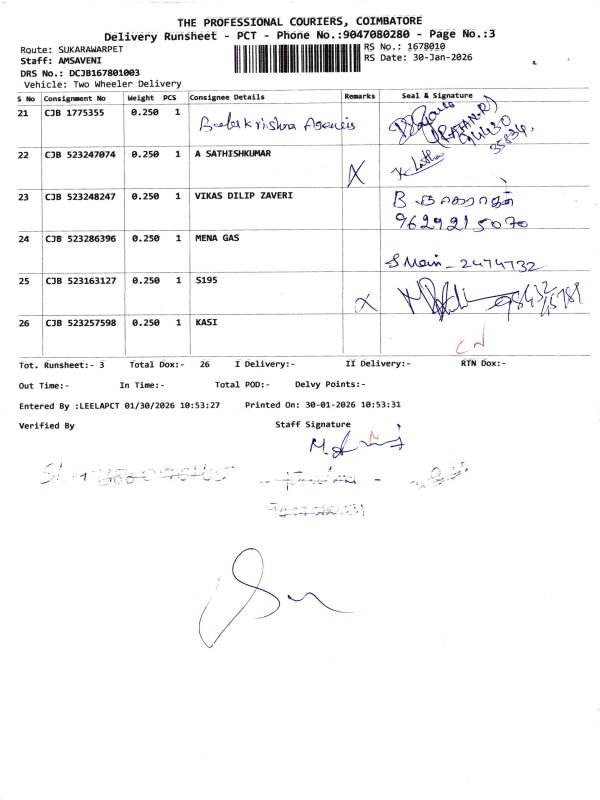 THE PROFESSIONAL COURIERS, COIMBATORE
Delivery Runsheet - PCT - Phone No.:9047080280 - Page No.:3
Route: SUKARAWARPET
RS No.: 1678010
Staff: AMSAVENI
RS Date: 30-Jan-2026
DRS No.: DCJB167801003
Vehicle: Two Wheeler Delivery
S No Consignment No Weight PCS Consignee Details Remarks Seal & Signature
21 CJB 1775355 0.250 1 Balakrishna Agencis (RATAN-R) 94430 35834
22 CJB 523247074 0.250 1 A SATHISHKUMAR X K. Latha
23 CJB 523248247 0.250 1 VIKAS DILIP ZAVERI B 9629215070
24 CJB 523286396 0.250 1 MENA GAS S Mani - 2474732
25 CJB 523163127 0.250 1 S195 98432
26 CJB 523257598 0.250 1 KASI CN
Tot. Runsheet:- 3 Total Dox:- 26 I Delivery:- II Delivery:- RTN Dox:-
Out Time:- In Time:- Total POD:- Delvy Points:-
Entered By :LEELAPCT 01/30/2026 10:53:27 Printed On: 30-01-2026 10:53:31
Verified By Staff Signature